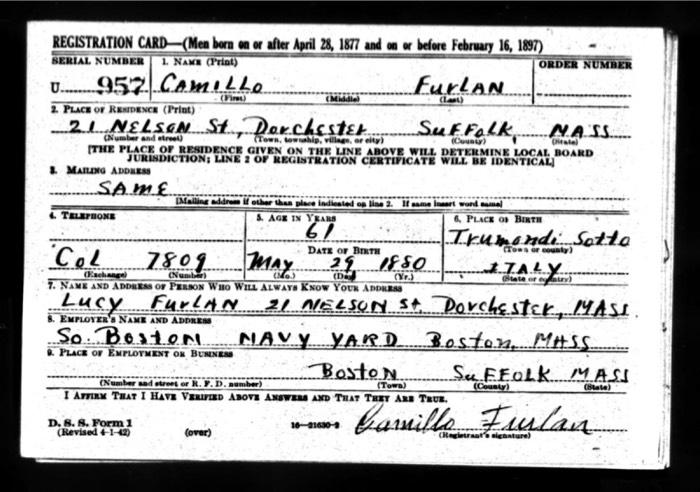 REGISTRATION CARD—(Men born on or after April 28, 1877 and on or before February 16, 1897)
SERIAL NUMBER 1. NAME (Print) ORDER NUMBER
U 957 CAMILLO FURLAN
(First) (Middle) (Last)
2. PLACE OF RESIDENCE (Print)
21 NELSON St, Dorchester SUFFOLK MASS
(Number and street) (Town, township, village, or city) (County) (State)
[THE PLACE OF RESIDENCE GIVEN ON THE LINE ABOVE WILL DETERMINE LOCAL BOARD
JURISDICTION; LINE 2 OF REGISTRATION CERTIFICATE WILL BE IDENTICAL]
3. MAILING ADDRESS
SAME
[Mailing address if other than place indicated on line 2. If same insert word same]
4. TELEPHONE 5. AGE IN YEARS 6. PLACE OF BIRTH
61 Trumondi Sotto
DATE OF BIRTH (Town or county)
Col 7809 MAY 29 1880 ITALY
(Exchange) (Number) (Mo.) (Day) (Yr.) (State or country)
7. NAME AND ADDRESS OF PERSON WHO WILL ALWAYS KNOW YOUR ADDRESS
LUCY FURLAN 21 NELSON St Dorchester, MASS
8. EMPLOYER'S NAME AND ADDRESS
So. BOSTON NAVY YARD BOSTON, MASS
9. PLACE OF EMPLOYMENT OR BUSINESS
BOSTON SUFFOLK MASS
(Number and street or R. F. D. number) (Town) (County) (State)
I AFFIRM THAT I HAVE VERIFIED ABOVE ANSWERS AND THAT THEY ARE TRUE.
D. S. S. Form 1
(Revised 4-1-42) (over) 16—21630-2 Camillo Furlan
(Registrant's signature)